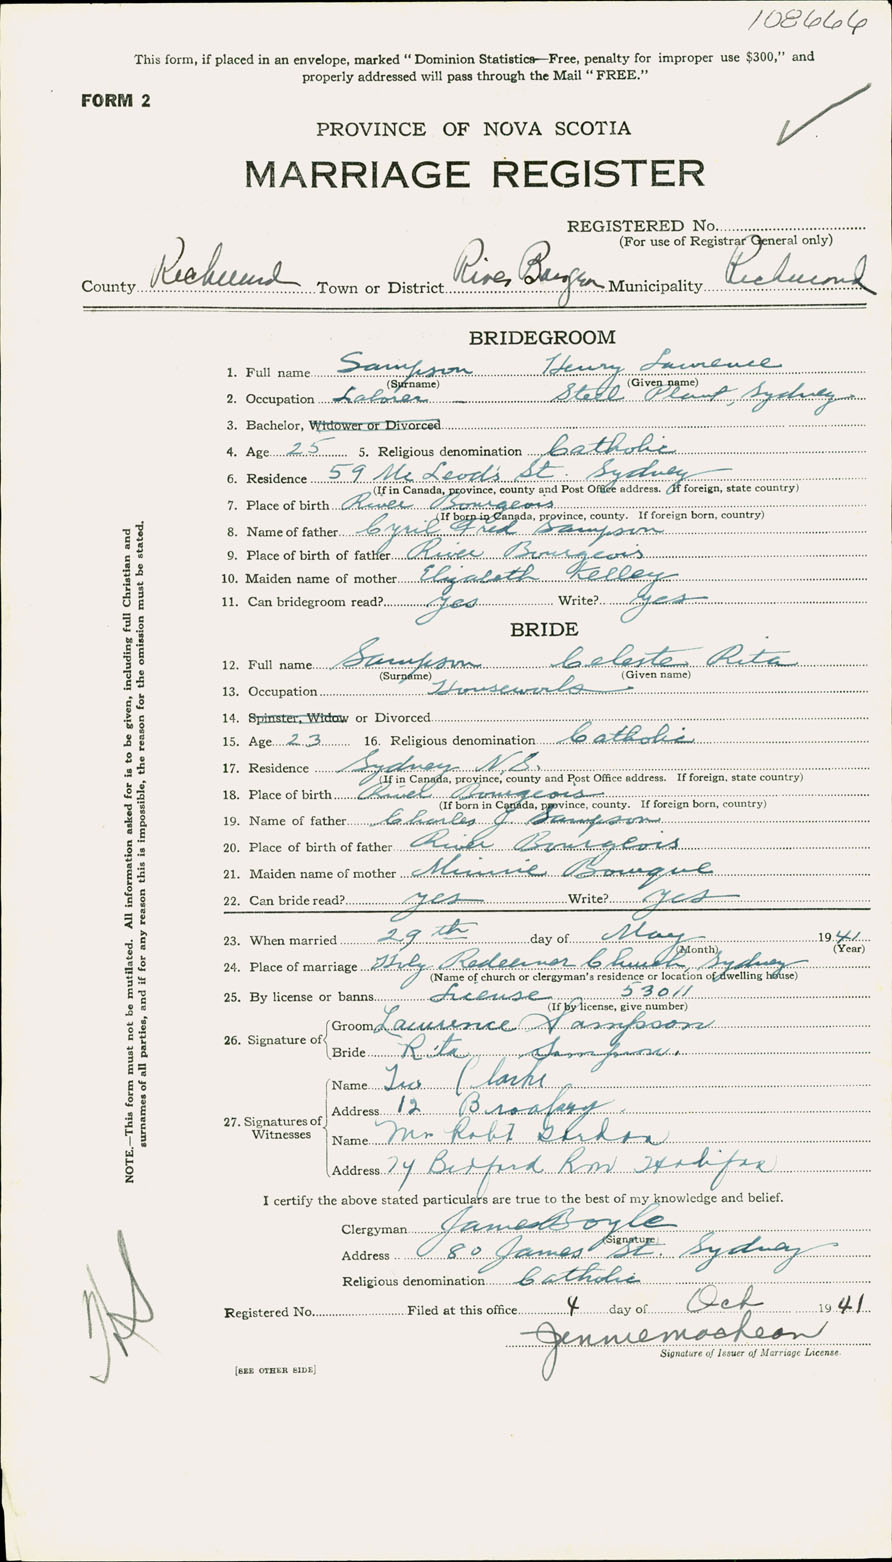 108666
This form, if placed in an envelope, marked "Dominion Statistics—Free, penalty for improper use $300," and
properly addressed will pass through the Mail "FREE."
FORM 2
PROVINCE OF NOVA SCOTIA
MARRIAGE REGISTER
REGISTERED No.
(For use of Registrar General only)
County Richmond Town or District River Bourgeon Municipality Richmond
BRIDEGROOM
1. Full name Sampson Henry Lawrence
(Surname) (Given name)
2. Occupation Laborer — Steel Plant, Sydney
3. Bachelor, Widower or Divorced
4. Age 25 5. Religious denomination Catholic
6. Residence 59 Mc Leod's St. Sydney
(If in Canada, province, county and Post Office address. If foreign, state country)
7. Place of birth River Bourgeois
(If born in Canada, province, county. If foreign born, country)
8. Name of father Cyril Fred Sampson
9. Place of birth of father River Bourgeois
10. Maiden name of mother Elizabeth Kelley
11. Can bridegroom read? yes Write? yes
BRIDE
12. Full name Sampson Celeste Rita
(Surname) (Given name)
13. Occupation Housework
14. Spinster, Widow or Divorced
15. Age 23 16. Religious denomination Catholic
17. Residence Sydney N.S.
(If in Canada, province, county and Post Office address. If foreign, state country)
18. Place of birth River Bourgeois
(If born in Canada, province, county. If foreign born, country)
19. Name of father Charles J Sampson
20. Place of birth of father River Bourgeois
21. Maiden name of mother Minnie Bourque
22. Can bride read? yes Write? yes
23. When married 29th day of May 1941
(Month) (Year)
24. Place of marriage Holy Redeemer Church, Sydney
(Name of church or clergyman's residence or location of dwelling house)
25. By license or banns License 53011
(If by license, give number)
26. Signature of
Groom Lawrence Sampson
Bride Rita Sampson.
27. Signatures of Witnesses
Name Clarke
Address 12
Name Mr Robt Gordon
Address 74 Bedford Row Halifax
I certify the above stated particulars are true to the best of my knowledge and belief.
Clergyman James Boyle
(Signature)
Address 80 James St. Sydney
Religious denomination Catholic
Registered No. Filed at this office 4 day of Oct 1941
Jennie
Signature of Issuer of Marriage License.
[SEE OTHER SIDE]
NOTE.—This form must not be mutilated. All information asked for is to be given, including full Christian and
surnames of all parties, and if for any reason this is impossible, the reason for the omission must be stated.